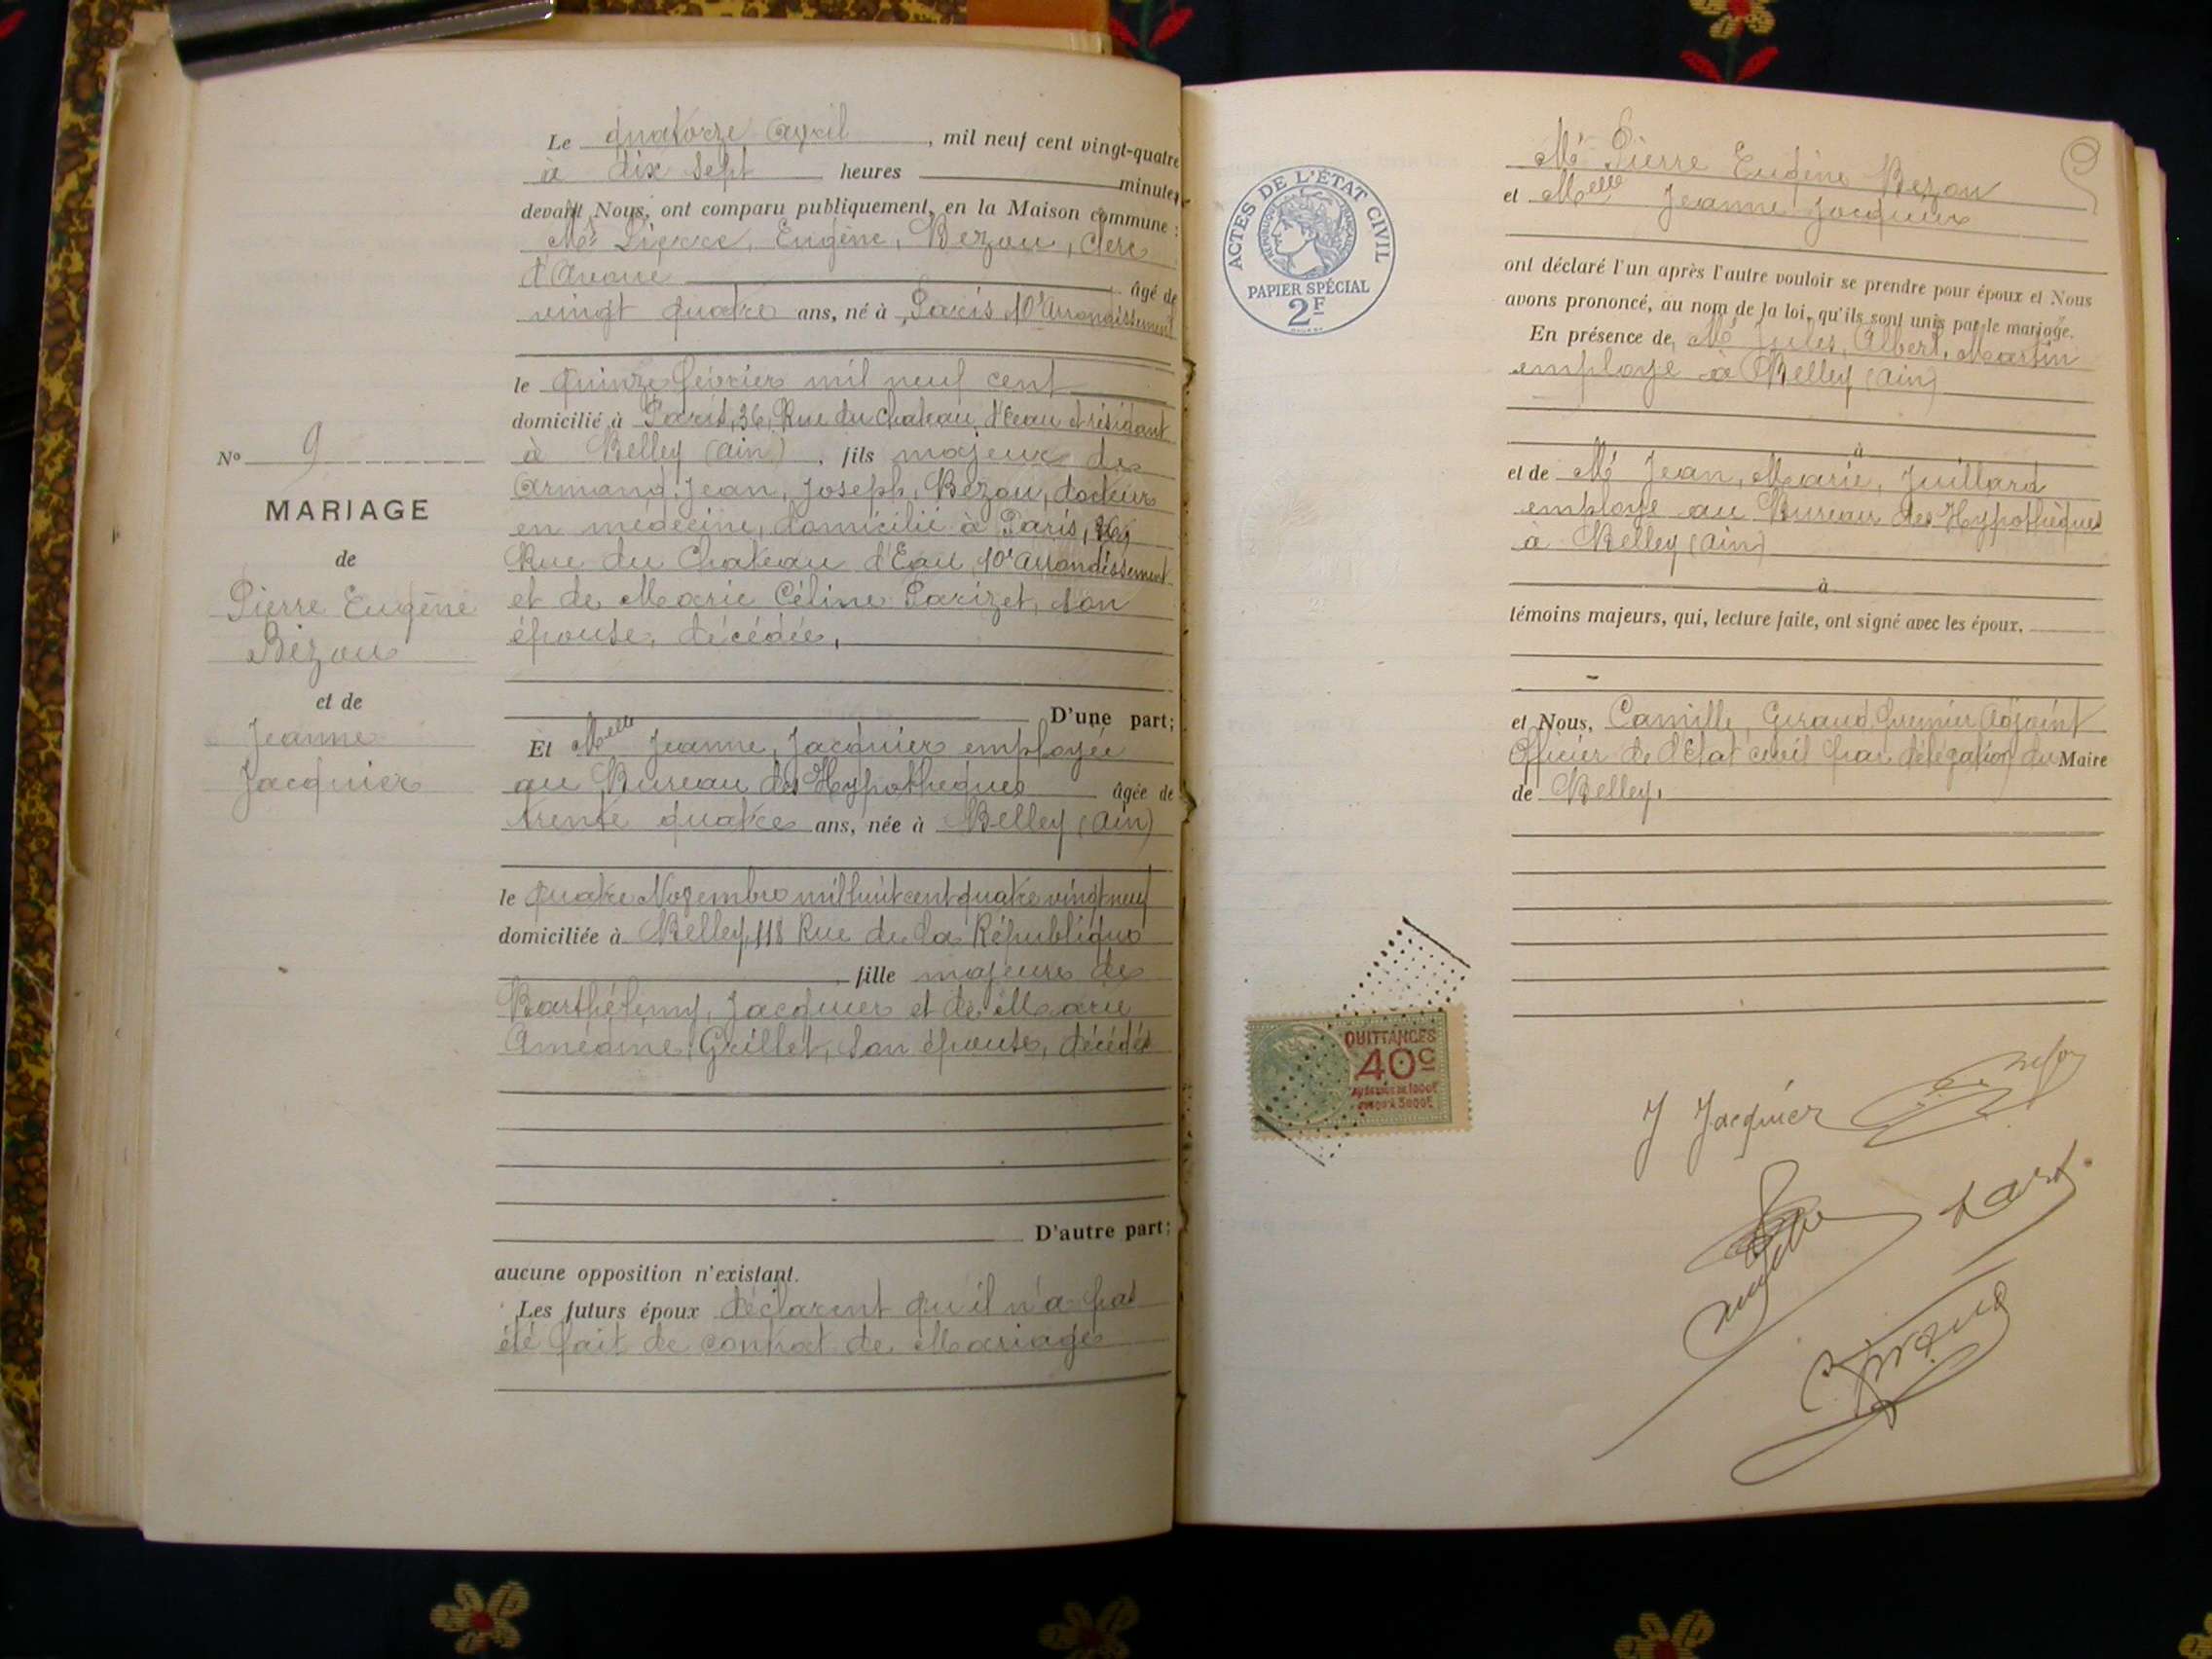 Le quatorze Avril, mil neuf cent vingt-quatre
à dix sept heures minutes
devant Nous, ont comparu publiquement, en la Maison commune :
Mr Pierre, Eugène, Bezou, clerc
d'Avoué âgé de
vingt quatre ans, né à Paris 10e Arrondissement
le quinze février mil neuf cent
domicilié à Paris, 36, Rue du Chateau d'Eau et résidant
à Belley (Ain), fils majeur de
Armand, Jean, Joseph, Bezou, docteur
en médecine, domicilié à Paris,
Rue du Chateau d'Eau, 10e Arrondissement
et de Marie Céline Parizet, son
épouse, décédée,
D'une part;
Et Melle Jeanne, Jacquier employée
au Bureau des Hypotheques âgée de
trente quatre ans, née à Belley (Ain)
le quatre Novembre mil huit cent quatre vingt neuf
domiciliée à Belley, 118 Rue de la République
fille majeure de
Barthélemy, Jacquier et de Marie
Grillet, son épouse, décédés
D'autre part;
aucune opposition n'existant.
Les futurs époux déclarent qu'il n'a pas
été fait de contrat de Mariage
No 9
MARIAGE
de
Pierre Eugène
Bezou
et de
Jeanne
Jacquier
ACTES DE L'ÉTAT CIVIL
RÉPUBLIQUE FRANÇAISE
PAPIER SPÉCIAL
2F
Mr Pierre Eugène Bezou
et Melle Jeanne Jacquier
ont déclaré l'un après l'autre vouloir se prendre pour époux et Nous
avons prononcé, au nom de la loi, qu'ils sont unis par le mariage.
En présence de Mr Jules, Albert, Martin
employé à Belley (Ain)
à
et de Mr Jean, Marie, Juillard
employé au Bureau des Hypothèques
à Belley (Ain)
à
témoins majeurs, qui, lecture faite, ont signé avec les époux,
et Nous, Camille, Giraud Premier Adjoint
Officier de l'Etat civil par délégation du Maire
de Belley.
QUITTANCES
40c
J Jacquier